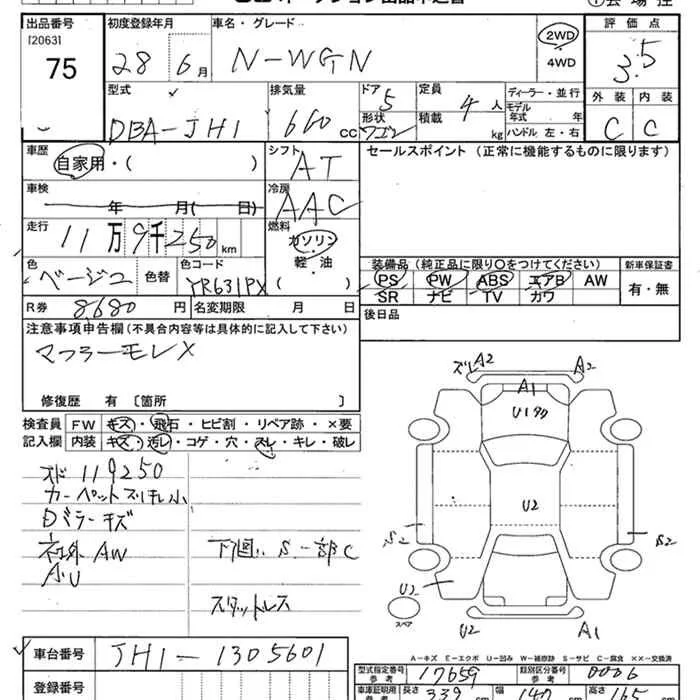 出品番号 初度登録年月 車名・グレード 評価点
[2063]
75
28 6月 N-WGN 2WD 4WD 3.5
型式 排気量 ドア 定員 ディーラー・並行 外装 内装
DBA-JH1 660 cc 5 4人 モデル年式 年 C C
形状 ワゴン 積載 kg ハンドル 左・右
車歴 シフト セールスポイント (正常に機能するものに限ります)
自家用・( ) AT
車検 冷房
年 月( 日) AAC
走行 燃料
11万9千250km ガソリン
軽・油
色 色替 色コード ( ) 装備品 (純正品に限り〇をつけてください) 新車保証書
ベージュ YR631PX PS PW ABS エアB AW 有・無
SR ナビ TV カワ
R券 8,680円 名変期限 月 日 後日品
注意事項申告欄 (不具合内容等は具体的に記入して下さい)
マフラーモレ×
修復歴 有 [箇所 ]
検査員 FW キズ・飛石・ヒビ割・リペア跡・×要
記入欄 内装 キズ・汚レ・コゲ・穴・スレ・キレ・破レ
オド 119250
カーペットズレ小
Dミラーキズ
社外AW
AU
下回りS一部C
スタッドレス
ズレ A2 A2
A1
U1
U2
S2 S2
U2
スペア
U2 A1
A-キズ E-エクボ U-凹み W-補修跡 S-サビ C-腐食 ××-交換済
車台番号 JH1-1305601 型式指定番号 参考 17659 類別区分番号 参考 0006
登録番号 車庫証明用 参考 長さ 339 cm 幅 147 高さ 165